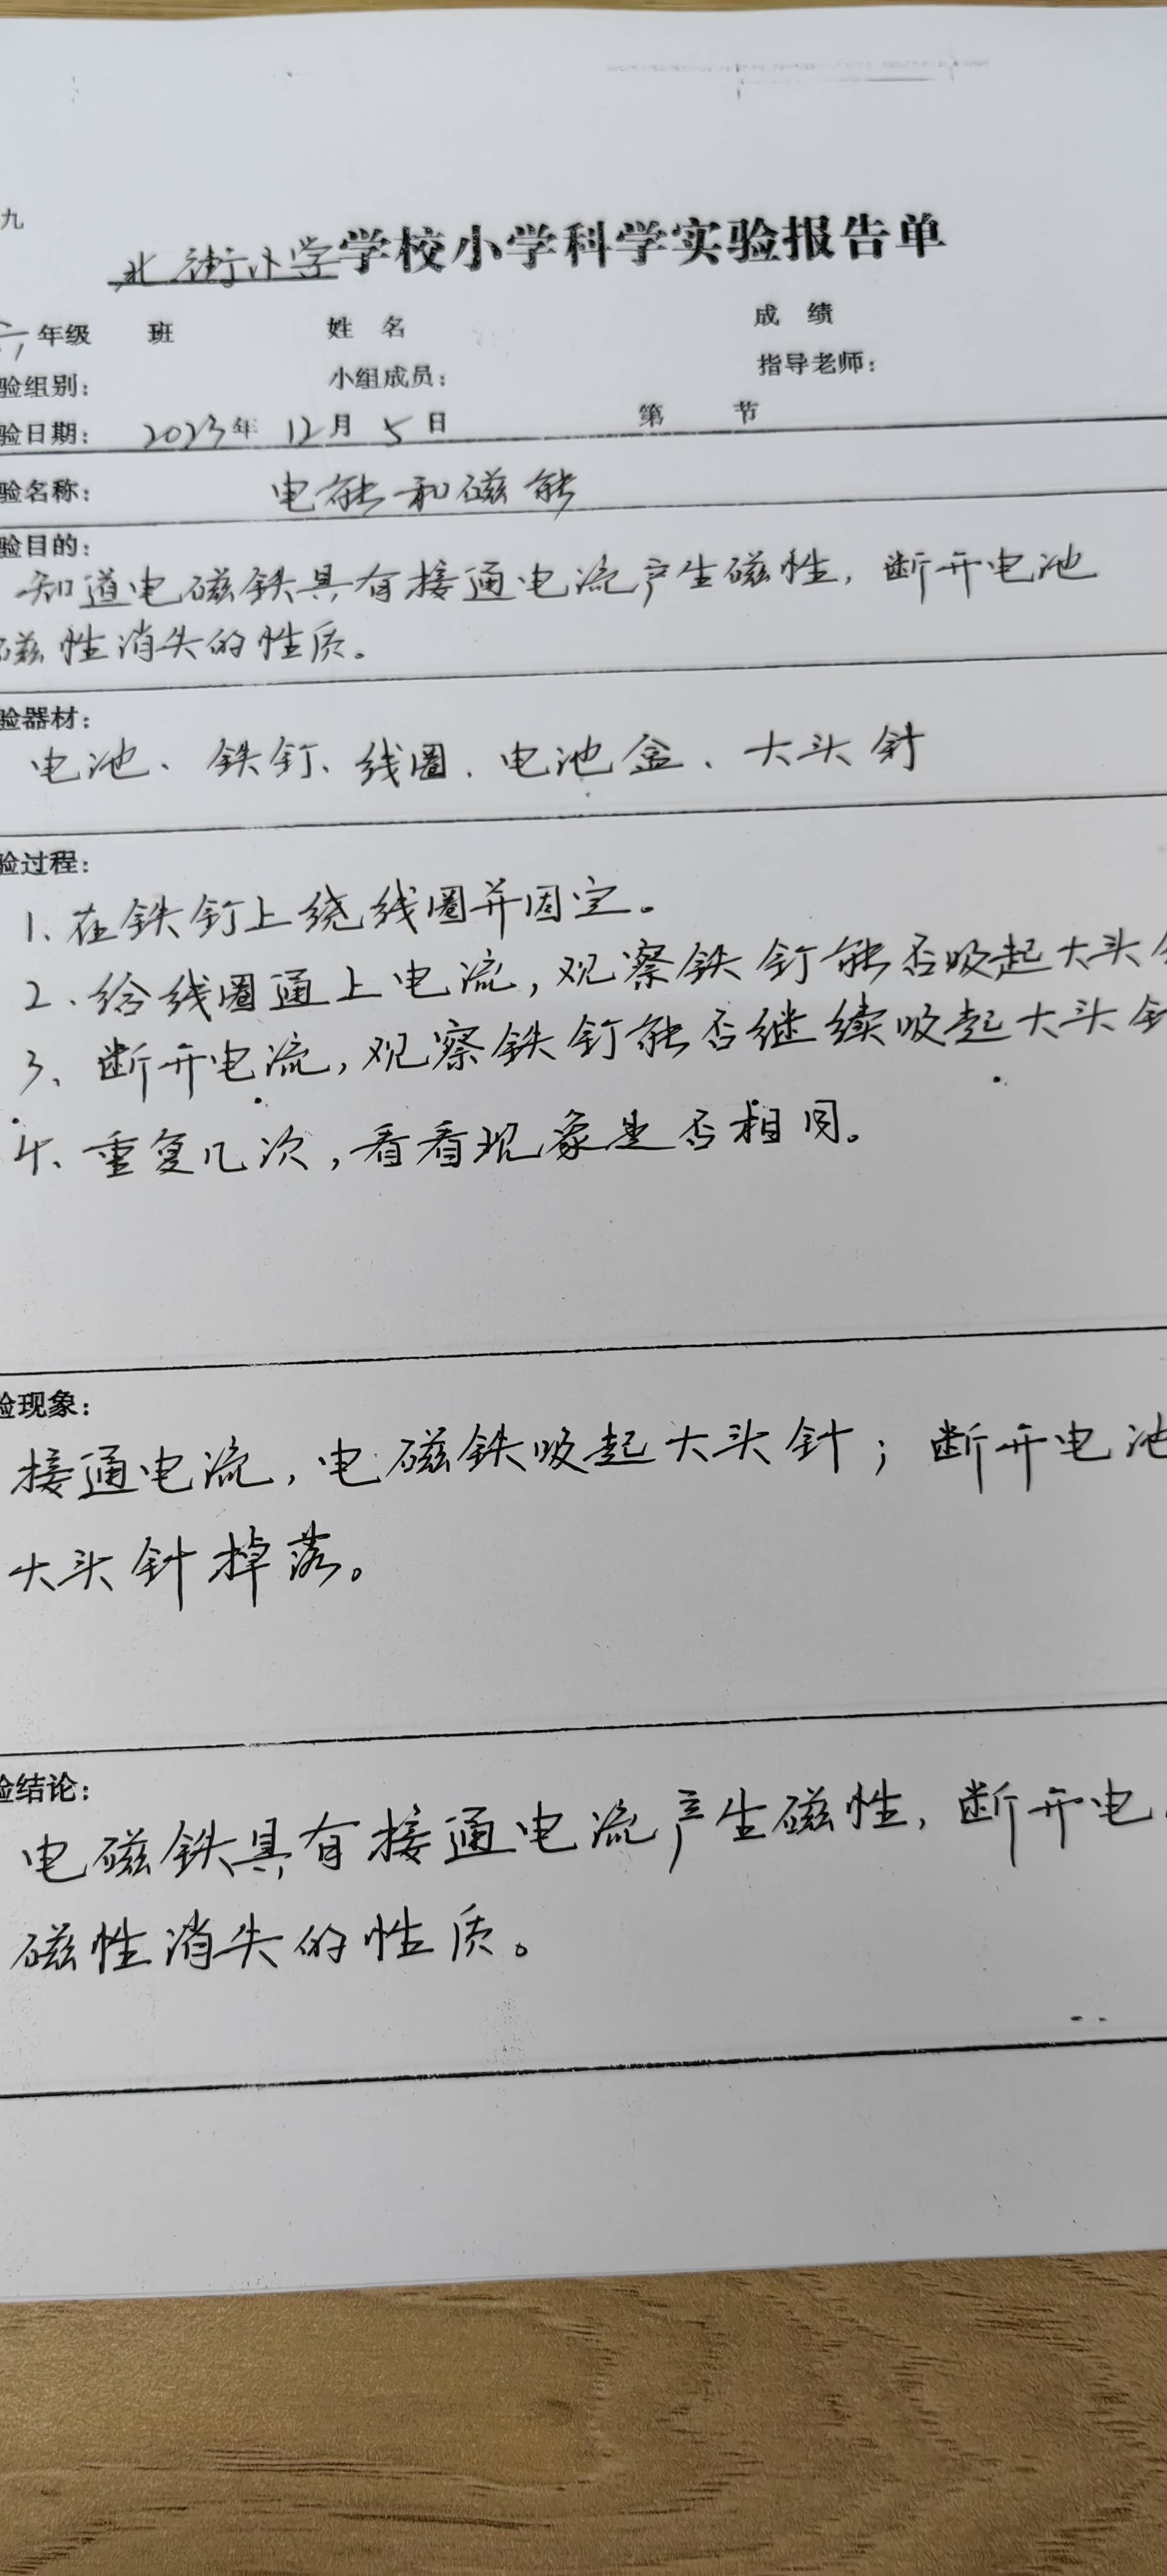 九
北街小学学校小学科学实验报告单
六年级 班 姓 名 成 绩
验组别: 小组成员: 指导老师:
验日期: 2023年 12月 5日 第 节
验名称: 电能和磁能
验目的:
知道电磁铁具有接通电流产生磁性,断开电池
磁性消失的性质。
验器材:
电池、铁钉、线圈、电池盒、大头针
验过程:
1、在铁钉上绕线圈并固定。
2、给线圈通上电流,观察铁钉能否吸起大头
3、断开电流,观察铁钉能否继续吸起大头针
4、重复几次,看看现象是否相同。
验现象:
接通电流,电磁铁吸起大头针;断开电池
大头针掉落。
验结论:
电磁铁具有接通电流产生磁性,断开电
磁性消失的性质。